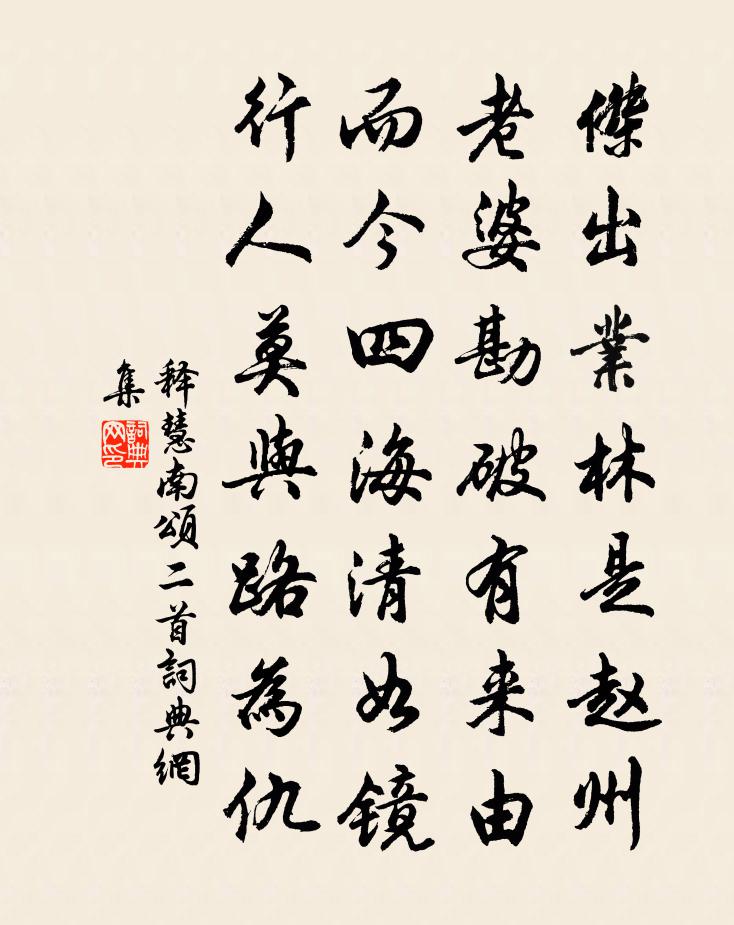 傑出業林是赵州
老婆勘破有来由
而今四海清如镜
行人莫與路為仇
释慧南頌二首詞典網
集
詞典
网印